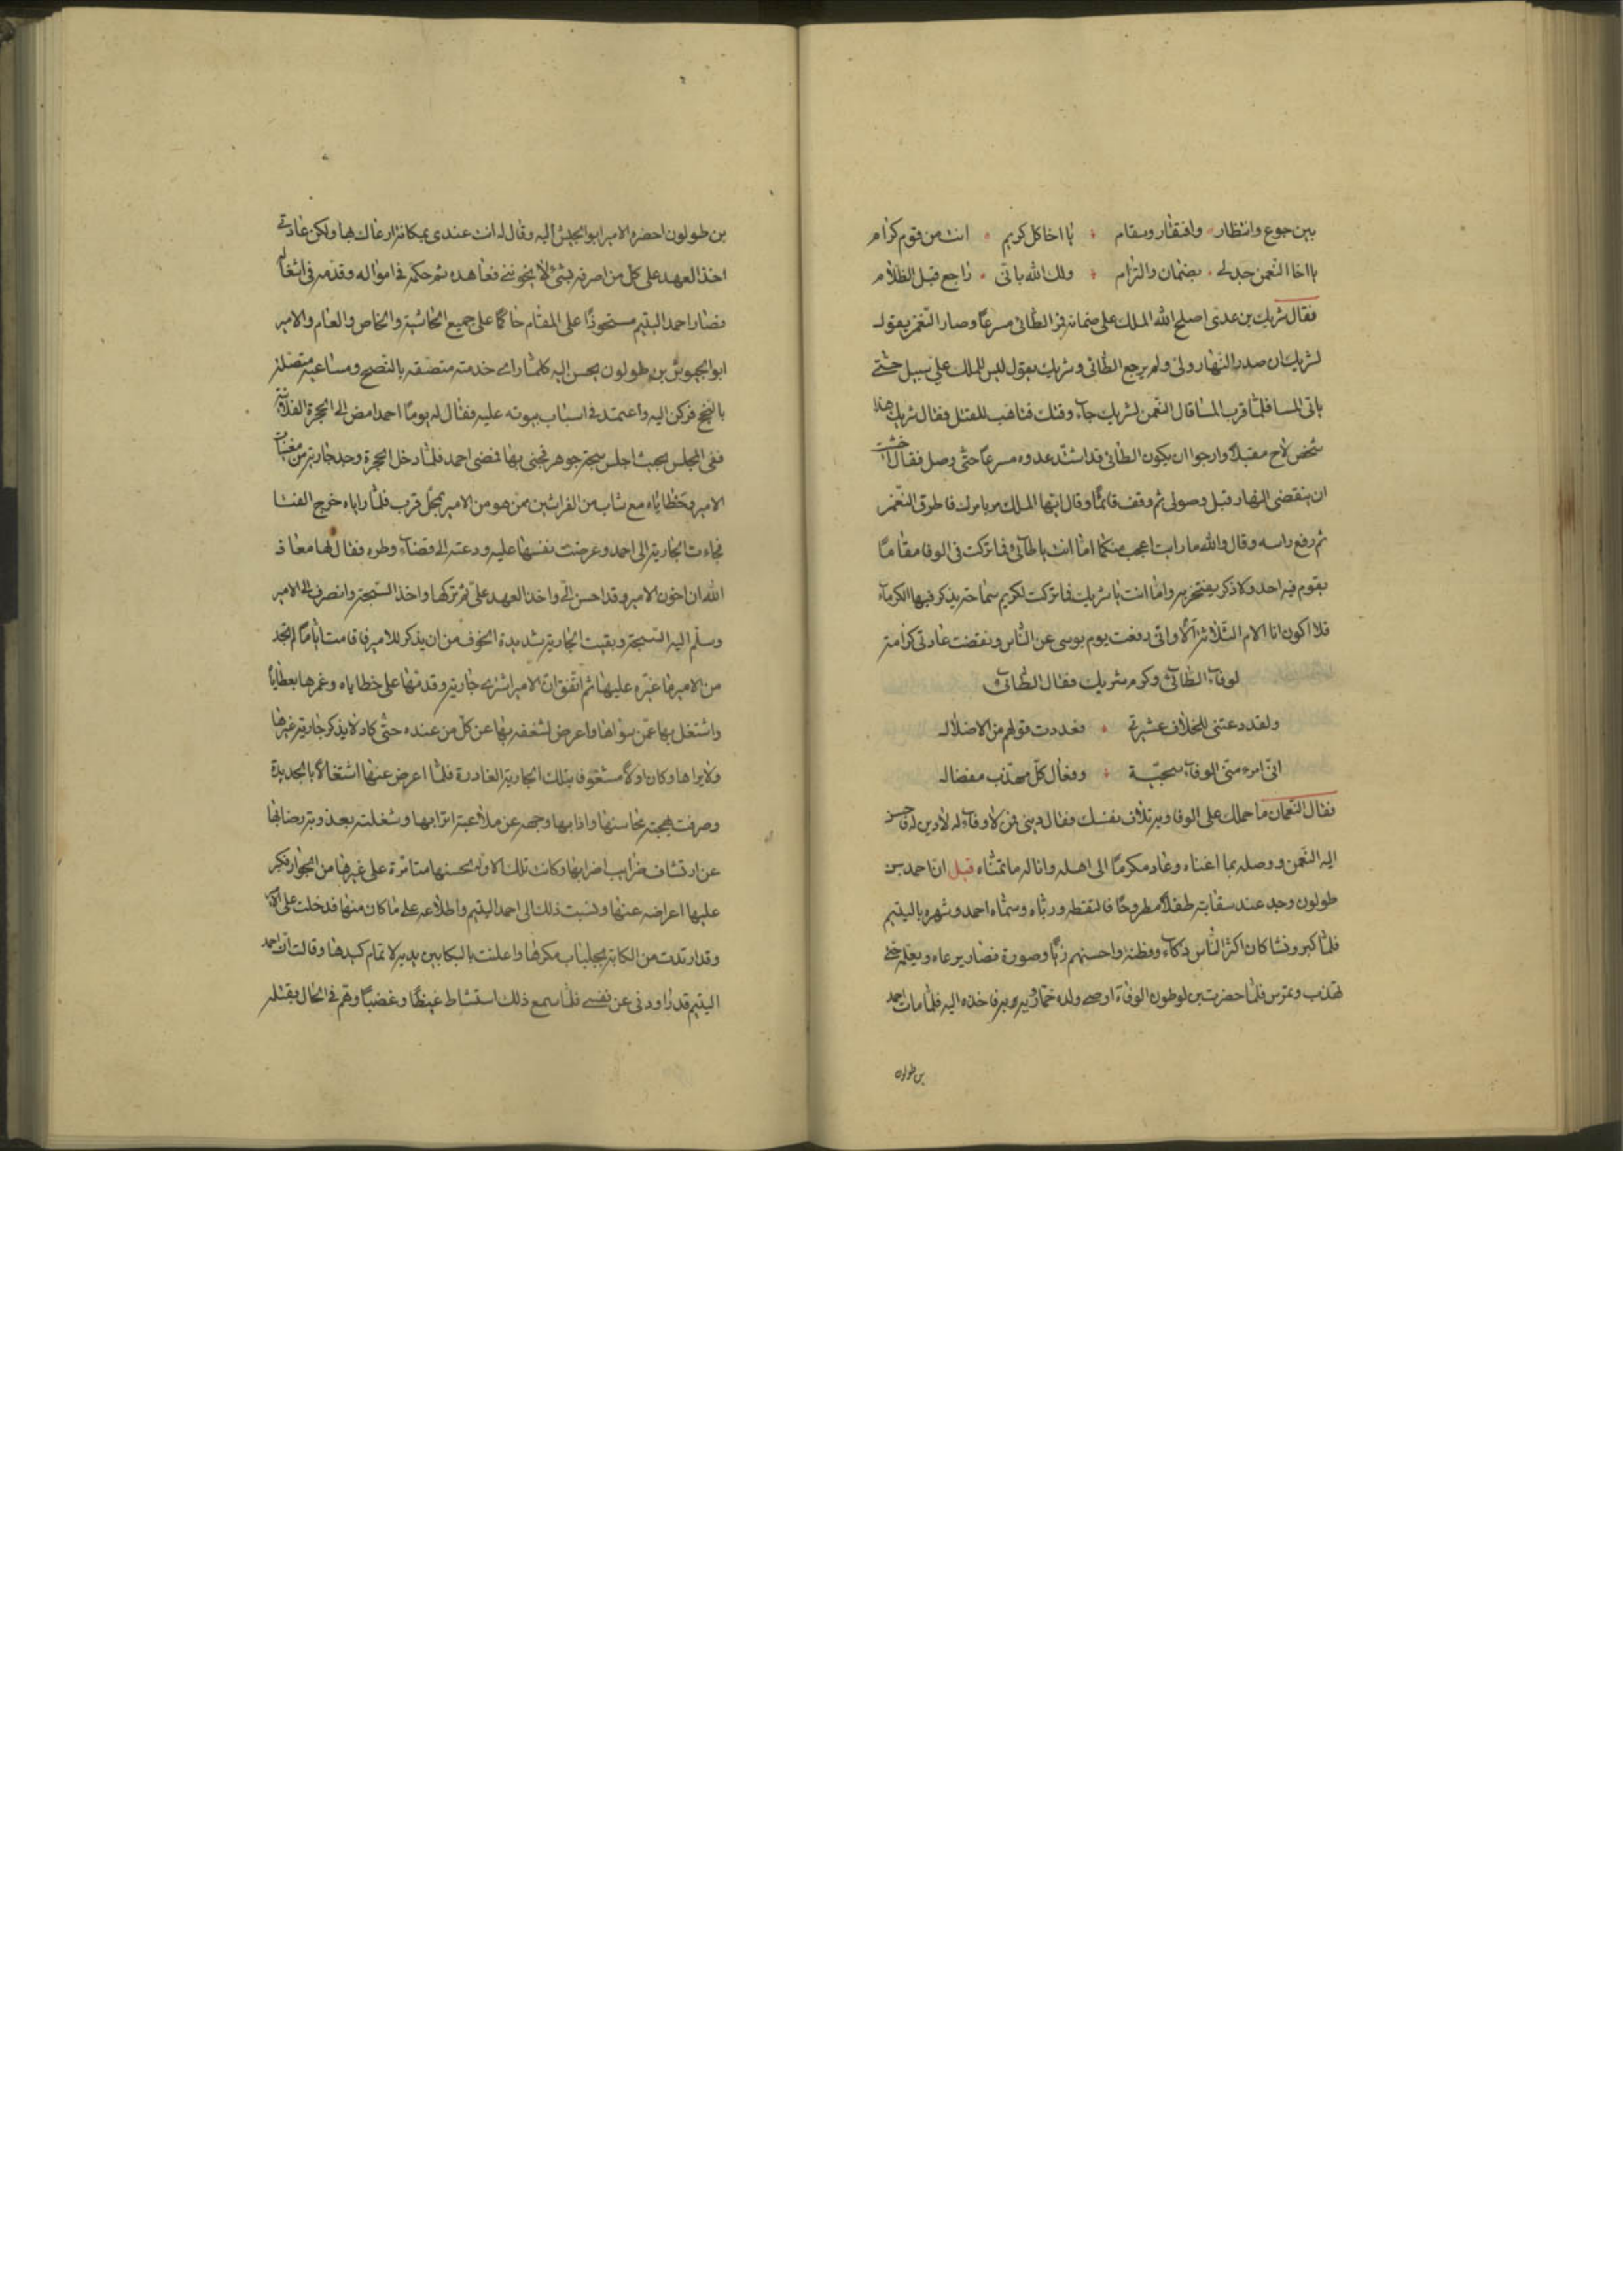 بين جوع وانتظار وافتقار وسقام يا اخا كل كريم انت من قوم كرام
يا اخا النعمن جد لى بضمان والتزام ولك الله باتى راجع قبل الظلام
فقال شريك بن عدى اصلح الله الملك على ضمانه فمر الطائى مسرعا وصار النعمن يقول
لشريك ان صدر النهار ولى ولم يرجع الطائى وشريك يقول ليس للملك على سبيل حتى
ياتى المسا فلما قرب المسا قال النعمن لشريك جاء وقتك فتاهب للقتل فقال شريك هذا
شخص لاح مقبلا وارجوا ان يكون الطائى قد اشتد عدوه مسرعا حتى وصل فقال خشيت
ان ينقضى النهار قبل وصولى ثم وقف قائما وقال ايها الملك مر بامرك فاطرق النعمن
ثم رفع راسه وقال والله ما رايت اعجب منكما اما انت يا طائى فما تركت فى الوفا مقاما
يقوم فيه احد ولا ذكر يفتخر به واما انت يا شريك فما تركت لكريم سماحة يذكر فيها الكرماء
فلا اكون انا الام الثلاثة الا وانى رفعت يوم بوسى عن الناس ونقضت عادتى كرامة
لوفاء الطائى وكرم شريك فقال الطائى
ولقد دعتنى للخلاف عشيرتى فعددت قولهم من الاضلال
انى امرء منى الوفاء سجية وفعال كل مهذب مفضال
فقال النعمان ما حملك على الوفا وفيه تلاف نفسك فقال دينى فمن لا وفاء له لا دين له فاحسن
اليه النعمن ووصله بما اغناه وعاد مكرما الى اهله واناله ما تمناه قيل ان احمد بن
طولون وجد عند سقايته طفلا مطروحا فالتقطه ورباه وسماه احمد وشهره باليتيم
فلما كبر ونشا كان اكثر الناس ذكاء وفطنة واحسنهم زيا وصورة فصار يرعاه ويعلمه حتى
تهذب وتمرس فلما حضرت بن طولون الوفاة اوصى ولده خمارويه به فاخذه اليه فلما مات احمد
بن طولون
بن طولون احضره الامير ابو الجيش اليه وقال له انت عندى بمكانة ارعاك بها ولكن عادتى
اخذ العهد على كل من اصرفه بشئ لا يخوننى فعاهده ثم حكمه فى امواله وقدمه فى اشغاله
فصار احمد اليتيم مستحوذا على المقام حاكما على جميع الحاشية والخاص والعام والامير
ابو الجيوش بن طولون يحسن اليه كلما راى خدمته متصفة بالنصح ومساعيه متصلة
بالنجح فركن اليه واعتمد فى اسباب بيوته عليه فقال له يوما احمد امض الى الحجرة الفلانية
ففى المجلس بحيث اجلس سبحة جوهر فجئنى بها فمضى احمد فلما دخل الحجرة وجد جارية من مغنيات
الامير وحظاياه مع شاب من الفراشين ممن هو من الامير بمحل قرب فلما راياه خرج الفتا
فجاءت الجارية الى احمد وعرضت نفسها عليه ودعته الى قضاء وطره فقال لها معاذ
الله ان اخون الامير وقد احسن الى واخذ العهد على ثم تركها واخذ السبحة وانصرف الى الامير
وسلم اليه السبحة وبقيت الجارية شديدة الخوف من ان يذكر للامير فاقامت اياما لم تجد
من الامير ما غيره عليها ثم اتفق ان الامير اشترى جارية وقدمها على حظاياه وغمرها بعطاياه
واشتغل بها عمن سواها واعرض لشغفه بها عن كل من عنده حتى كاد لا يذكر جارية غيرها
ولا يراها وكان اولا مشغوفا بتلك الجارية الغادرة فلما اعرض عنها اشتغالا بالجديدة
وصرفت بهجة محاسنها وادابها وجهه عن ملاعبة اترابها وشغلته بعذوبة رضابها
عن ارتشاف ضراب اضرابها وكانت تلك الاولى لحسنها متامرة على غيرها من الجوار فكبر
عليها اعراضه عنها ونسبت ذلك الى احمد اليتيم واطلاعه على ما كان منها فدخلت على الامير
وقد ارتدت من الكابة بجلباب مكرها واعلنت بالبكا بين يديه لاتمام كيدها وقالت ان احمد
اليتيم قد راودنى عن نفسى فلما سمع ذلك استشاط غيظا وغضبا وهم فى الحال بقتله